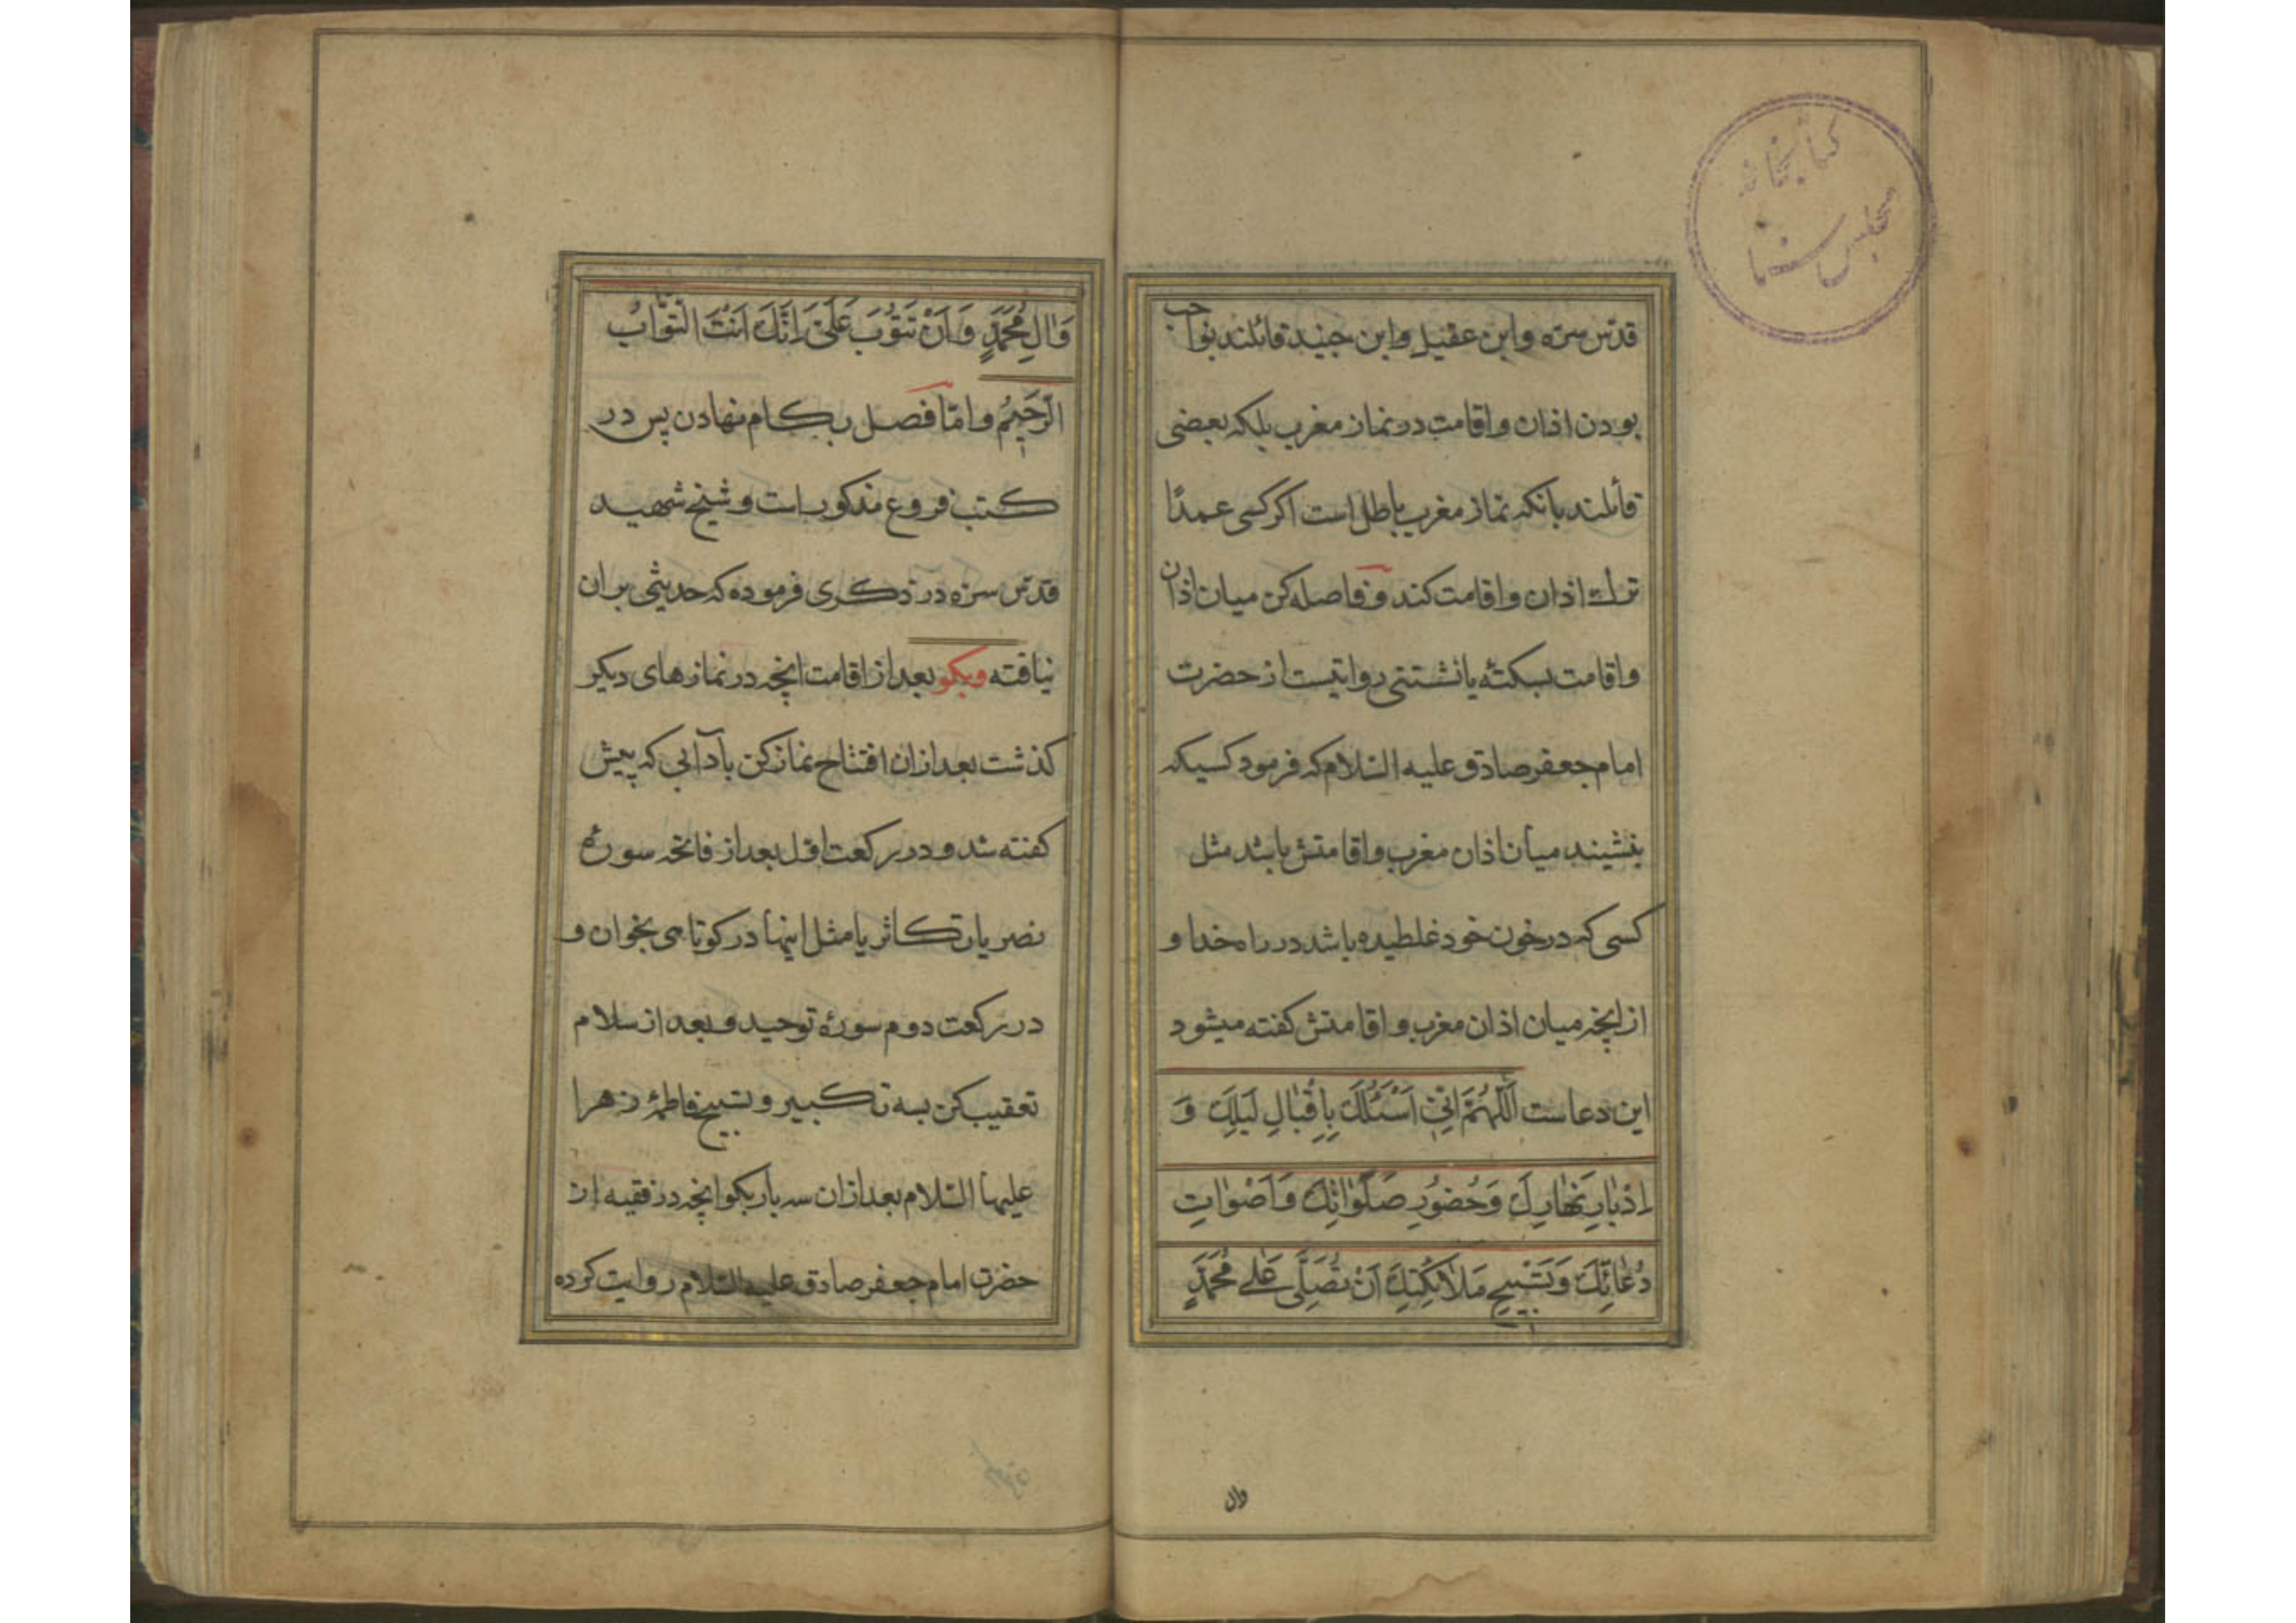 کتابخانه
مجلس سنا
قدّس سرّه وابن عقیل وابن جنید قائلند بواجب
بودن اذان واقامت در نماز مغرب بلکه بعضی
قائلند بانکه نماز مغرب باطل است اکر کسی عمدًا
ترک اذان واقامت کند و فاصله کن میان اذان
واقامت بسکتهٔ یا نشستنی روایتیست از حضرت
امام جعفر صادق علیه السّلام که فرمود کسیکه
بنشیند میان اذان مغرب واقامتش باشد مثل
کسی که در خون خود غلطیده باشد در راه خدا و
از انچه میان اذان مغرب و اقامتش کفته میشود
این دعاست اَللّٰهُمَّ اِنّیٖ اَسْئَلُكَ بِاِقْبٰالِ لَیْلِكَ وَ
اِدْبٰارِ نَهٰارِكَ وَحُضُورِ صَلَوٰاتِكَ وَاَصْوٰاتِ
دُعٰائِكَ وَتَسْبیٖحِ مَلاٰئِكَتِكَ اَنْ تُصَلِّیَ عَلٰی مُحَمَّدٍ
وال
وَاٰلِ مُحَمَّدٍ وَاَنْ تَتُوْبَ عَلَیَّ اِنَّكَ اَنْتَ التَّوّٰابُ
الرَّحیٖمُ وامّا فصل بکام نهادن پس در
کتب فروع مذکور است و شیخ شهید
قدّس سرّه در ذکری فرموده که حدیثی بران
نیافته وبکو بعد از اقامت انچه در نماز های دیکر
کذشت بعد ازان افتتاح نماز کن بآدابی که پیش
کفته شد و در رکعت اوّل بعد از فاتحه سورهٔ
نصر یا تکاثر یا مثل اینها در کوتاهی بخوان و
در رکعت دوم سورهٔ توحید و بعد از سلام
تعقیب کن بسه تکبیر و تسبیح فاطمهٔ زهرا
علیها السّلام بعد ازان سه بار بکو انچه در فقیه از
حضرت امام جعفر صادق علیه السّلام روایت کرده